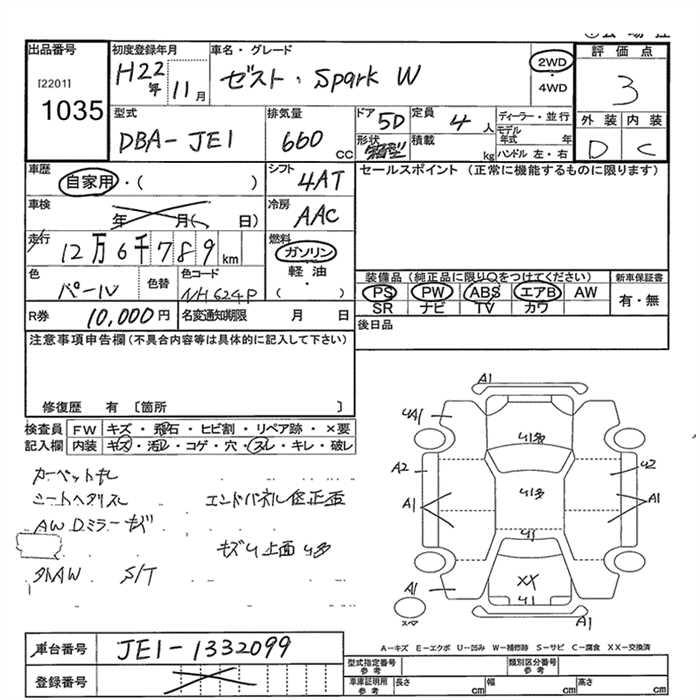 出品番号
[2201]
1035
初度登録年月
H22年 11月
車名・グレード
ゼスト・Spark W
2WD
・
4WD
評価点
3
外装 内装
D C
型式
DBA-JE1
排気量
660 CC
ドア 5D
形状
定員 4 人
積載 kg
ディーラー・並行
モデル年式 年
ハンドル 左・右
車歴
自家用・( )
シフト
4AT
セールスポイント (正常に機能するものに限ります)
車検
年 月( 日)
冷房
AAC
走行
12万6千789km
燃料
ガソリン
軽油
( )
色
パール
色替
色コード
NH624P
装備品 (純正品に限り○をつけてください)
PS PW ABS エアB AW
SR ナビ TV カワ
新車保証書
有・無
R券 10,000円
名変通知期限 月 日
後日品
注意事項申告欄(不具合内容等は具体的に記入して下さい)
修復歴 有 〔箇所 〕
検査員記入欄
FW キズ・飛石・ヒビ割・リペア跡・×要
内装 キズ・汚レ・コゲ・穴・スレ・キレ・破レ
シートヘタリスレ
エンドパネル修正歪
AW Dミラーキズ
AW S/T
A1
A1
A2
A1
A1
A1
A1
XX
A-キズ E-エクボ U-凹み W-補修跡 S-サビ C-腐食 XX-交換済
車台番号 JE1-1332099
登録番号
型式指定番号
参考
類別区分番号
参考
車庫証明用
参考
長さ cm 幅 cm 高さ cm